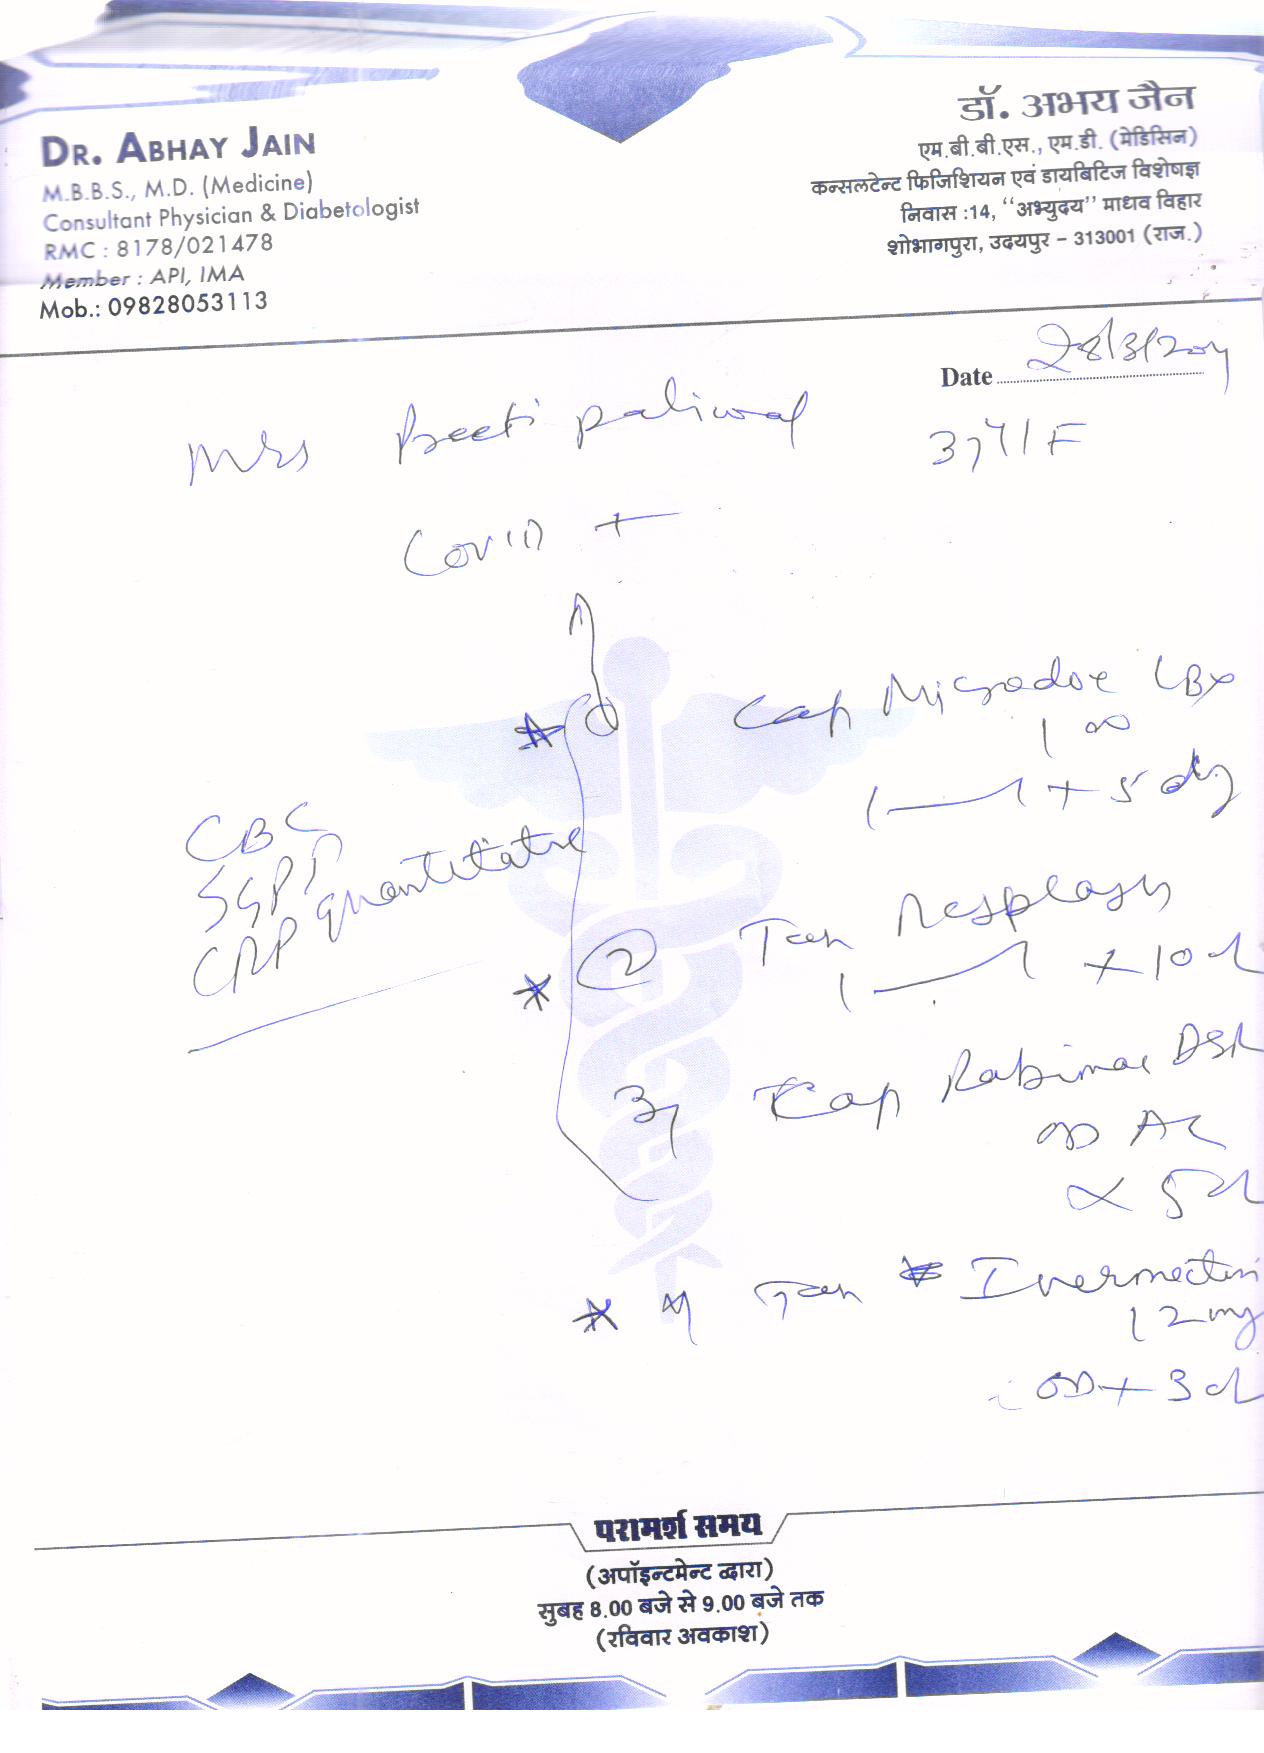 DR. ABHAY JAIN
M.B.B.S., M.D. (Medicine)
Consultant Physician & Diabetologist
RMC : 8178/021478
Member : API, IMA
Mob.: 09828053113
डॉ. अभय जैन
एम.बी.बी.एस., एम.डी. (मेडिसिन)
कन्सलटेन्ट फिजिशियन एवं डायबिटिज विशेषज्ञ
निवास :14, ‘‘अभ्युदय’’ माधव विहार
शोभागपुरा, उदयपुर - 313001 (राज.)
Date 28/3/
Mrs Preeti Paliwal
Covid +
Cap Microdox LBX
100
1 — 1 + 5 day
CBC
SGPT
CRP quantitative
2 Tab
1 — 1 + 10 d
3 Cap DSR
OD AC
x 5d
4 Tab Ivermectin
12 mg
OD + 3 d
परामर्श समय
(अपॉइन्टमेन्ट द्वारा)
सुबह 8.00 बजे से 9.00 बजे तक
(रविवार अवकाश)